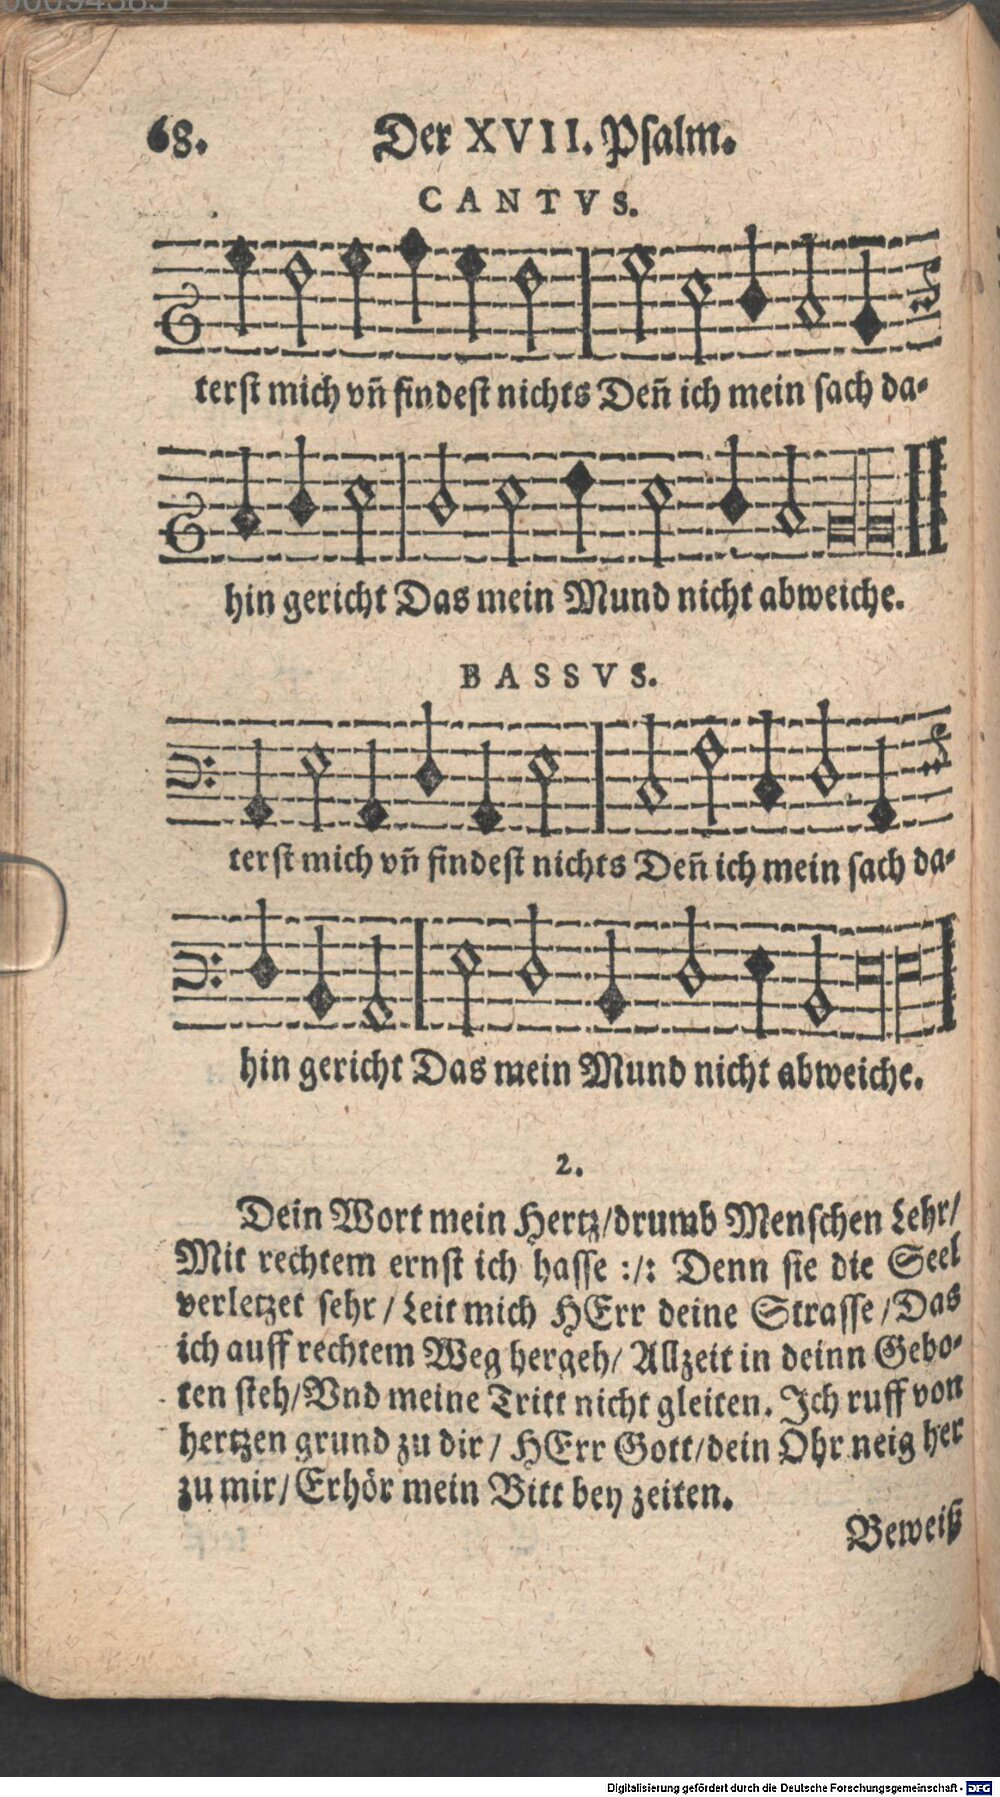 68. Der XVII. Psalm.
CANTVS.
terst mich vñ findest nichts Deñ ich mein sach da-
hin gericht Das mein Mund nicht abweiche.
BASSVS.
terst mich vñ findest nichts Deñ ich mein sach da-
hin gericht Das mein Mund nicht abweiche.
2.
Dein Wort mein Hertz/drumb Menschen Lehr/
Mit rechtem ernst ich hasse :/: Denn sie die Seel
verletzet sehr / Leit mich HErr deine Strasse / Das
ich auff rechtem Weg hergeh/ Allzeit in deinn Gebo-
ten steh/Vnd meine Tritt nicht gleiten. Ich ruff von
hertzen grund zu dir / HErr Gott/dein Ohr neig her
zu mir/ Erhör mein Bitt bey zeiten.
Beweiß
Digitalisierung gefördert durch die Deutsche Forschungsgemeinschaft - DFG